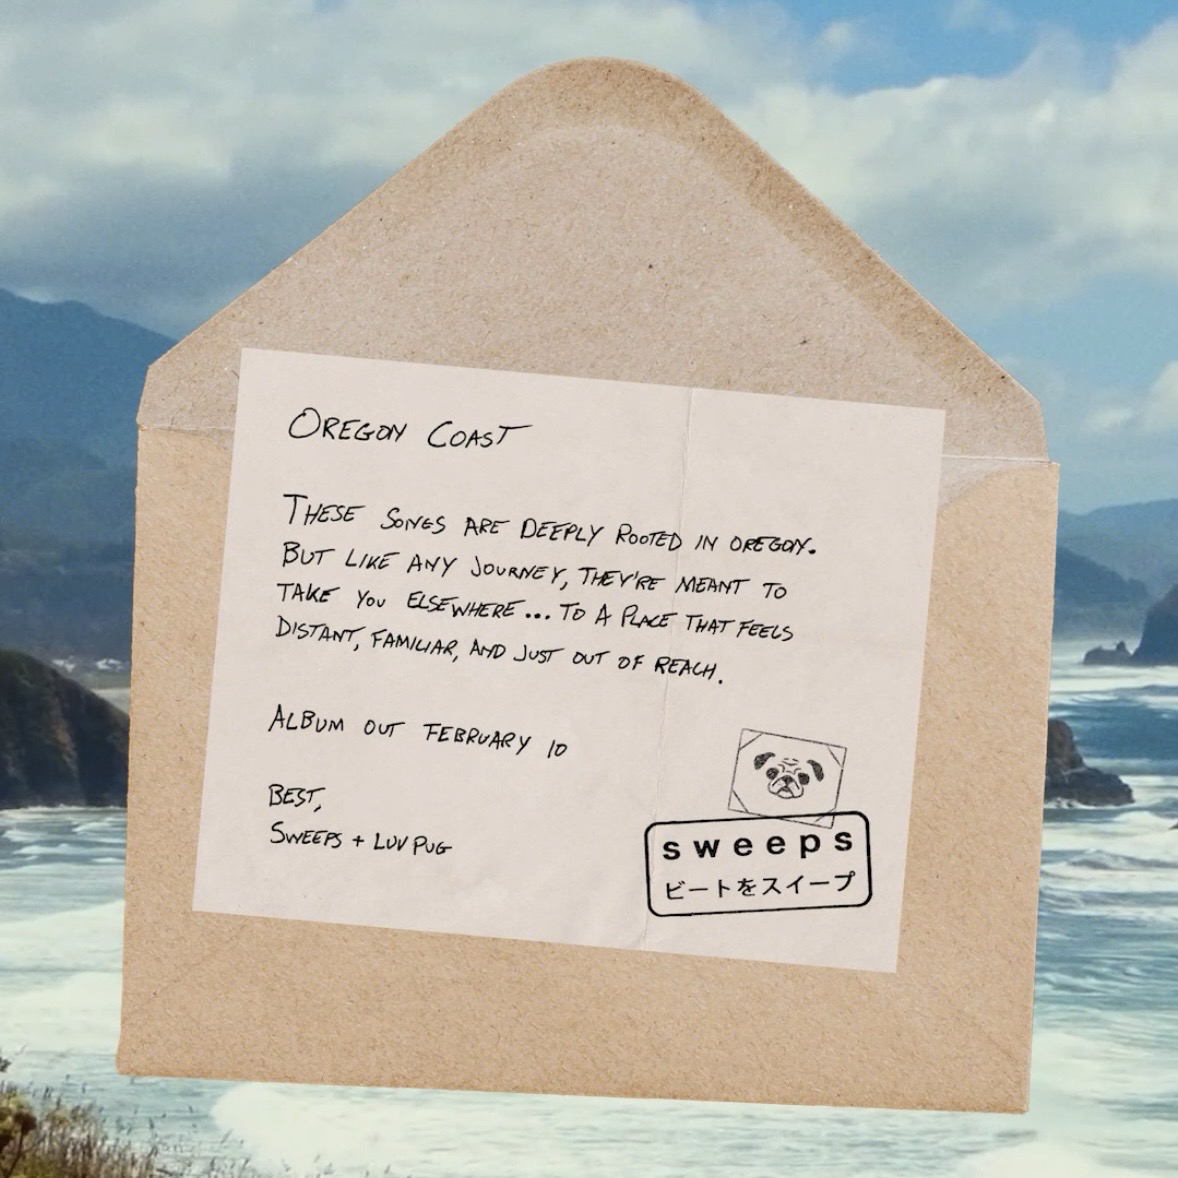 OREGON COAST
THESE SONGS ARE DEEPLY ROOTED IN OREGON.
BUT LIKE ANY JOURNEY, THEY'RE MEANT TO
TAKE YOU ELSEWHERE... TO A PLACE THAT FEELS
DISTANT, FAMILIAR, AND JUST OUT OF REACH.
ALBUM OUT FEBRUARY 10
BEST,
SWEEPS + LUV PUG
sweeps
ビートをスイープ